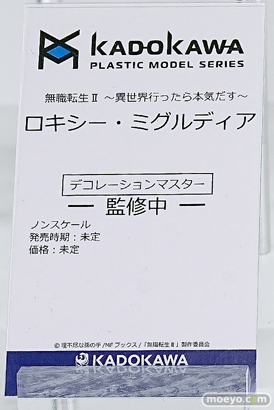 KADOKAWA
PLASTIC MODEL SERIES
無職転生Ⅱ ～異世界行ったら本気だす～
ロキシー・ミグルディア
デコレーションマスター
監修中
ノンスケール
発売時期：未定
価格：未定
© 理不尽な孫の手/MFブックス/「無職転生Ⅱ」製作委員会
KADOKAWA
moeyo.com